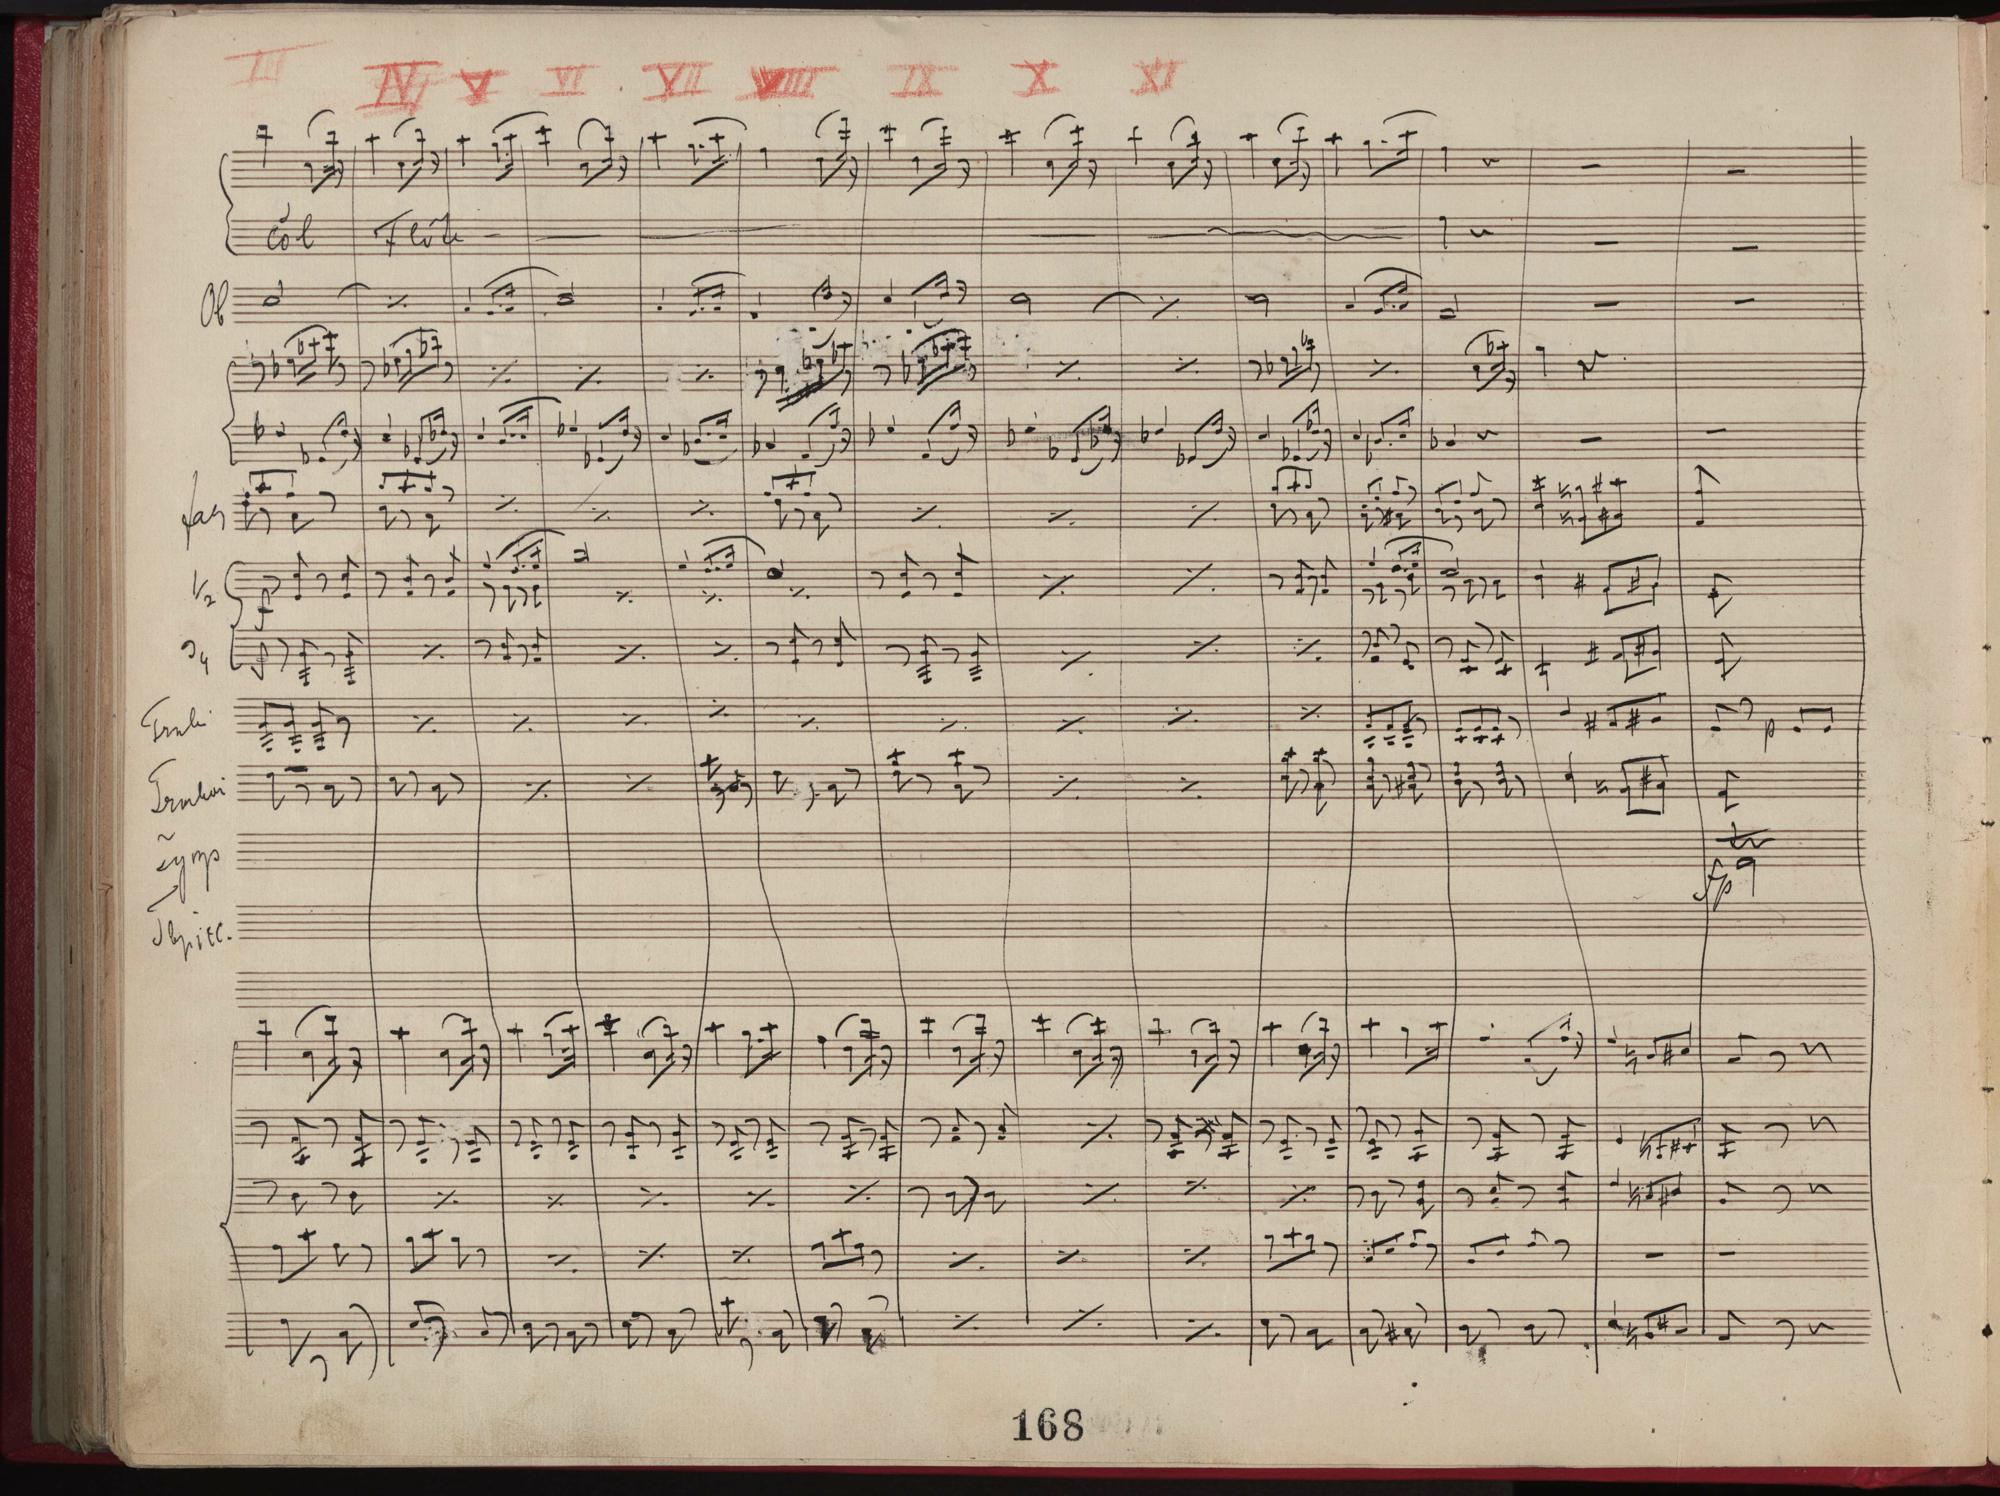 III IV V VI VII VIII IX X XI
col Flöte
Ob
fag
1/2
f
3/4
Trmb
p
Tymp
tr
fp
168